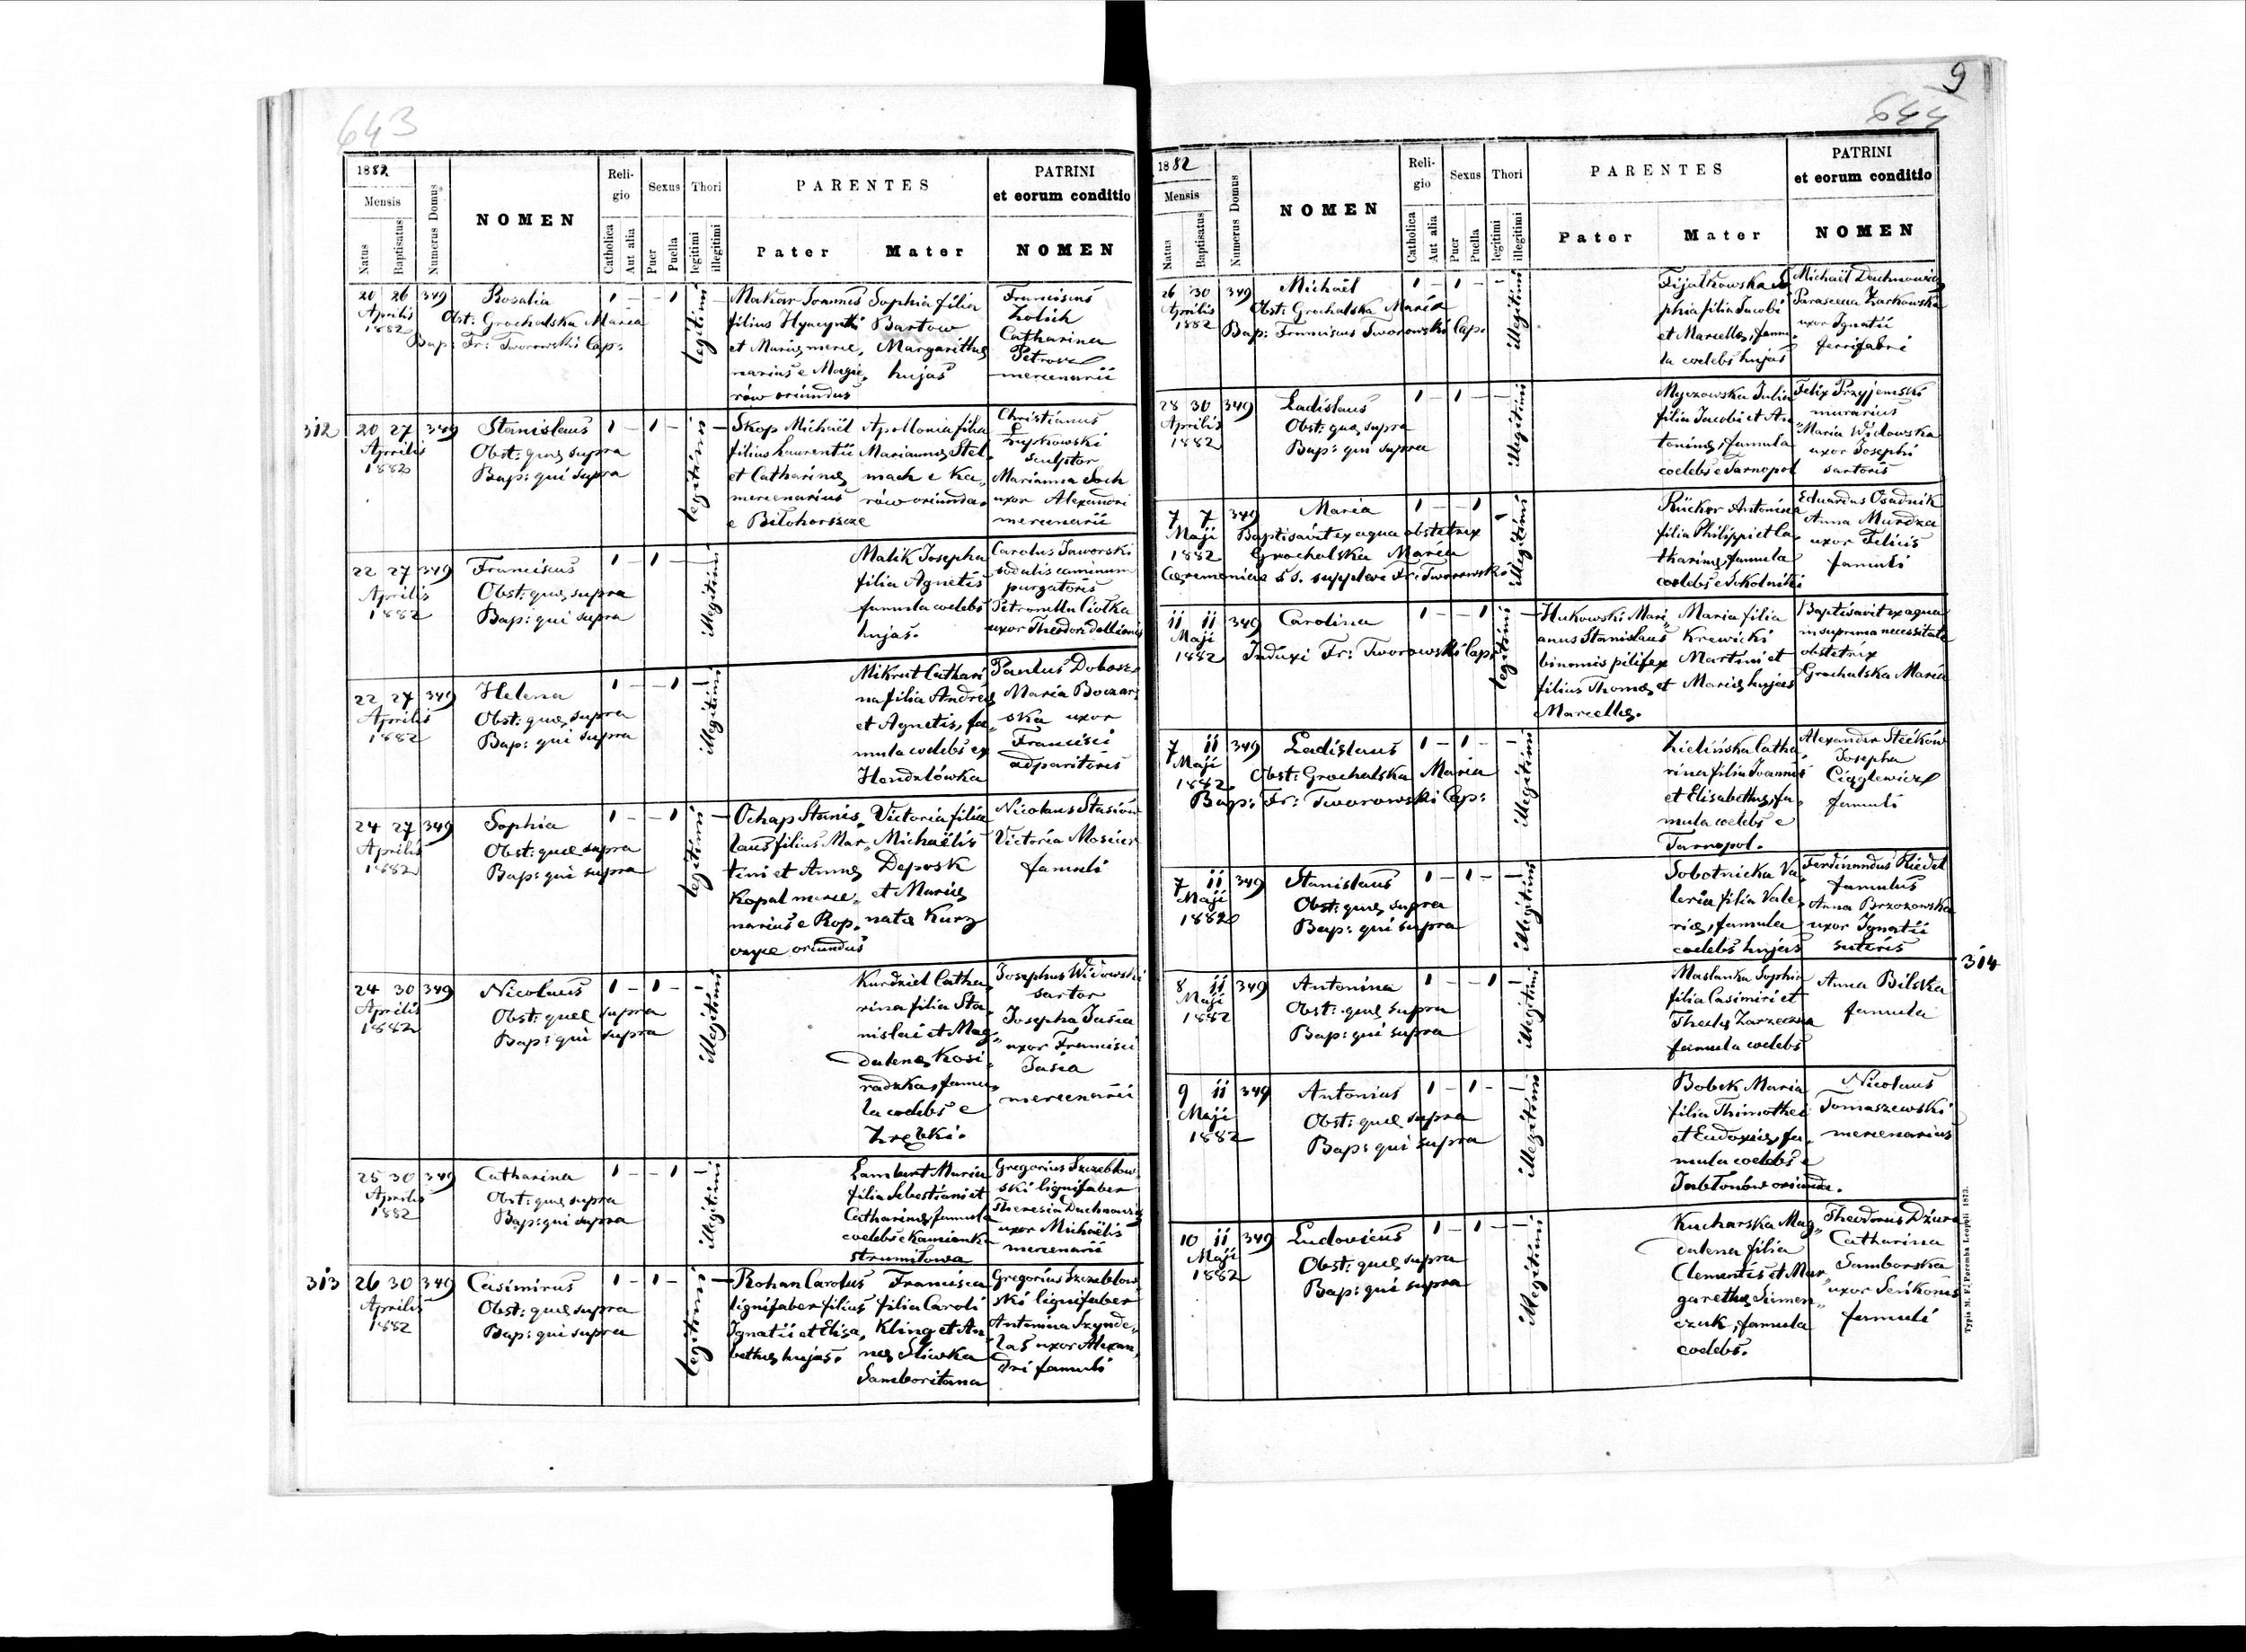 643
1882
Mensis
Natus
Baptisatus
Numerus Domus
NOMEN
Religio
Catholica
Aut alia
Sexus
Puer
Puella
Thori
legitimi
illegitimi
PARENTES
Pater
Mater
PATRINI
et eorum conditio
NOMEN
20 26 349 Rosalia 1 - - 1 legitimi -
Aprilis
1882
Obst: Grochalska Maria
Bap: Fr: Tworowski Cap:
Makar Joannes
filius Hyacynthi
et Mariæ merce,,
narius e Magie,,
rów oriundus
Sophia filia
Bartow
Margarithæ
hujas
Franciscus
Zolich
Catharina
Petrova
mercenarii
312
20 27 349 Stanislaus 1 - 1 - legitimi -
Aprilis
1882
Obst: quæ supra
Bap: qui supra
Skop Michaël
filius Laurentii
et Catharinæ
mercenarius
e Biłohorszcze
Apollonia filia
Mariannæ Stel,,
mach e Ka,,
rów oriunda.
Christianus
sculptor
Marianna Soch
uxor Alexandri
mercenarii
22 27 349 Franciscus 1 - 1 - - illegitimi
Aprilis
1882
Obst: quæ supra
Bap: qui supra
Malik Josepha
filia Agnetis
famula coelebs
hujas.
Carolus Jaworski
sodalis caminum
purgatoris
Petronella Ciołka
uxor Theodori
22 27 349 Helena 1 - - 1 - illegitimi
Aprilis
1882
Obst: quæ supra
Bap: qui supra
Mikrut Cathari
na filia Andreæ
et Agnetis, fa,,
mula coelebs ex
Hondzlówka
Paulus Dobosz
Maria Boczar,,
ska uxor
Francisci
adparitoris
24 27 349 Sophia 1 - - 1 legitimi -
Aprilis
1882
Obst: quæ supra
Bap: qui supra
Ochap Stanis,,
laus filius Mar,,
tini et Annæ
Kopal merce,,
narius e Rop,,
czyce oriundus
Victoria filia
Michaëlis
Deposk
et Mariæ
nata Kurz
Nicolaus Stasiów
Victoria Moscier
famuli
24 30 349 Nicolaus 1 - 1 - - illegitimi
Aprilis
1882
Obst: quæ supra
Bap: qui supra
Kurdziel Catha,,
rina filia Sta,,
nislai et Mag,,
dalenæ Kosi,,
radzka, famu,,
la coelebs e
Zrębki.
Josephus Widowski
sartor
Josepha Jasia
uxor Francisci
Jasia
mercenarii
25 30 349 Catharina 1 - - 1 - illegitimi
Aprilis
1882
Obst: quæ supra
Bap: qui supra
Lambert Maria
filia Sebestiani et
Catharinæ famula
coelebs e Kamionka
strumiłowa
Gregorius Szczebłow,,
ski lignifaber
Theresia Duchnowicz
uxor Michaëlis
mercenarii
313
26 30 349 Casimirus 1 - 1 - legitimi -
Aprilis
1882
Obst: quæ supra
Bap: qui supra
Rohan Carolus
lignifaber filius
Ignatii et Elisa,,
bethæ hujas.
Francisca
filia Caroli
Kling et An,,
næ Sliwka
Samboritana
Gregorius Szczebłow
ski lignifaber
Antonina Szynde,,
laś uxor Alexan,,
dri famuli
9
644
1882
Mensis
Natus
Baptisatus
Numerus Domus
NOMEN
Religio
Catholica
Aut alia
Sexus
Puer
Puella
Thori
legitimi
illegitimi
PARENTES
Pater
Mater
PATRINI
et eorum conditio
NOMEN
26 30 349 Michaël 1 - 1 - - illegitimi
Aprilis
1882
Obst: Grochalska Maria
Bap: Franciscus Tworowski Cap:
Fijałkowska So
phia filia Jacobi
et Marcellæ, famu
la coelebs hujas
Michaël Duchnowicz
Parascena Zarkowska
uxor Ignatii
ferrifabri
28 30 349 Ladislaus 1 - 1 - - illegitimi
Aprilis
1882
Obst: quæ supra
Bap: qui supra
Myczowska Julia
filia Jacobi et An
toninæ, famula
coelebs e Tarnopol
Felix Przyjemski
murarius
Maria Widowska
uxor Josephi
sartoris
7 7 349 Maria 1 - - 1 illegitimi
Maji
1882
Baptisavit ex aqua obstetrix
Grochalska Maria
Cæremonias S S. supplevi Fr: Tworowski
Rücker Antonina
filia Philippi et Ca,,
tharinæ, famula
coelebs e Sokolniki
Eduardus Osadnik
Anna Murdza
uxor Felicis
famuli
11 11 349 Carolina 1 - - 1 legitimi -
Maji
1882
Induxi Fr: Tworowski Cap:
Hukowski Mari,,
anus Stanislaus
binomis pilifex
filius Thomæ et
Marcellæ.
Maria filia
Krewicki
Martini et
Mariæ hujas
Baptisavit ex aqua
in suprema necessitate
obstetrix
Grochalska Maria
7 11 349 Ladislaus 1 - 1 - - illegitimi
Maji
1882
Obst: Grochalska Maria
Bap: Fr: Tworowski Cap:
Zielińska Catha
rina filia Joannis
et Elisabethæ, fa,,
mula coelebs e
Tarnopol.
Alexander Steików
Josepha
Ciąglewicz
famuli
7 11 349 Stanislaus 1 - 1 - - illegitimi
Maji
1882
Obst: quæ supra
Bap: qui supra
Sobotnicka Va,,
leria filia Vale
riæ, famula
coelebs hujas
Ferdinandus Riedel
famulus
Anna Brzozowska
uxor Ignatii
sutoris
314
8 11 349 Antonina 1 - - 1 - illegitimi
Maji
1882
Obst: quæ supra
Bap: qui supra
Maslanka Sophia
filia Casimiri et
Theclæ Zarzeczna
famula coelebs
Anna Bilska
famula
9 11 349 Antonius 1 - 1 - - illegitimi
Maji
1882
Obst: quæ supra
Bap: qui supra
Bobek Maria
filia Thimothei
et Eudoxiæ, fa,,
mula coelebs e
Jabłonów oriunda.
Nicolaus
Tomaszewski
mercenarius
10 11 349 Ludovicus 1 - 1 - - illegitimi
Maji
1882
Obst: quæ supra
Bap: qui supra
Kucharska Mag,,
dalena filia
Clementis et Mar,,
garethæ Simen,,
czuk, famula
coelebs.
Theodorus Dżura
Catharina
Samborska
uxor Senkonis
famuli
Typis M. F. Poremba Leopoli 1873.